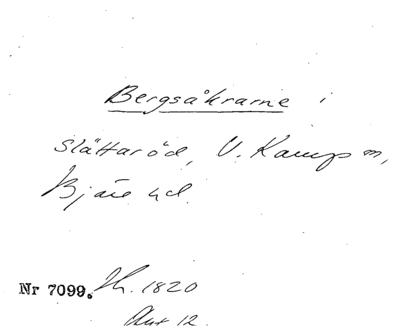 Bergsåkrarne i
Slättaröd, V. Karups sn,
Bjäre hd.
Nr 7099. 1820
Akt 12.